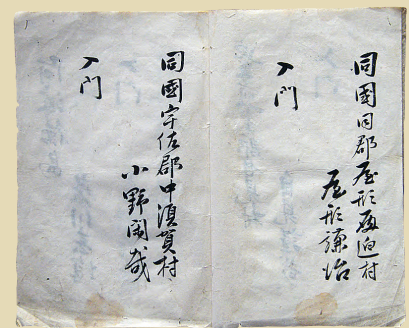 同國同郡屋形
村
屋形謙
入門
同國宇佐郡中須賀村
小野
哉
入門